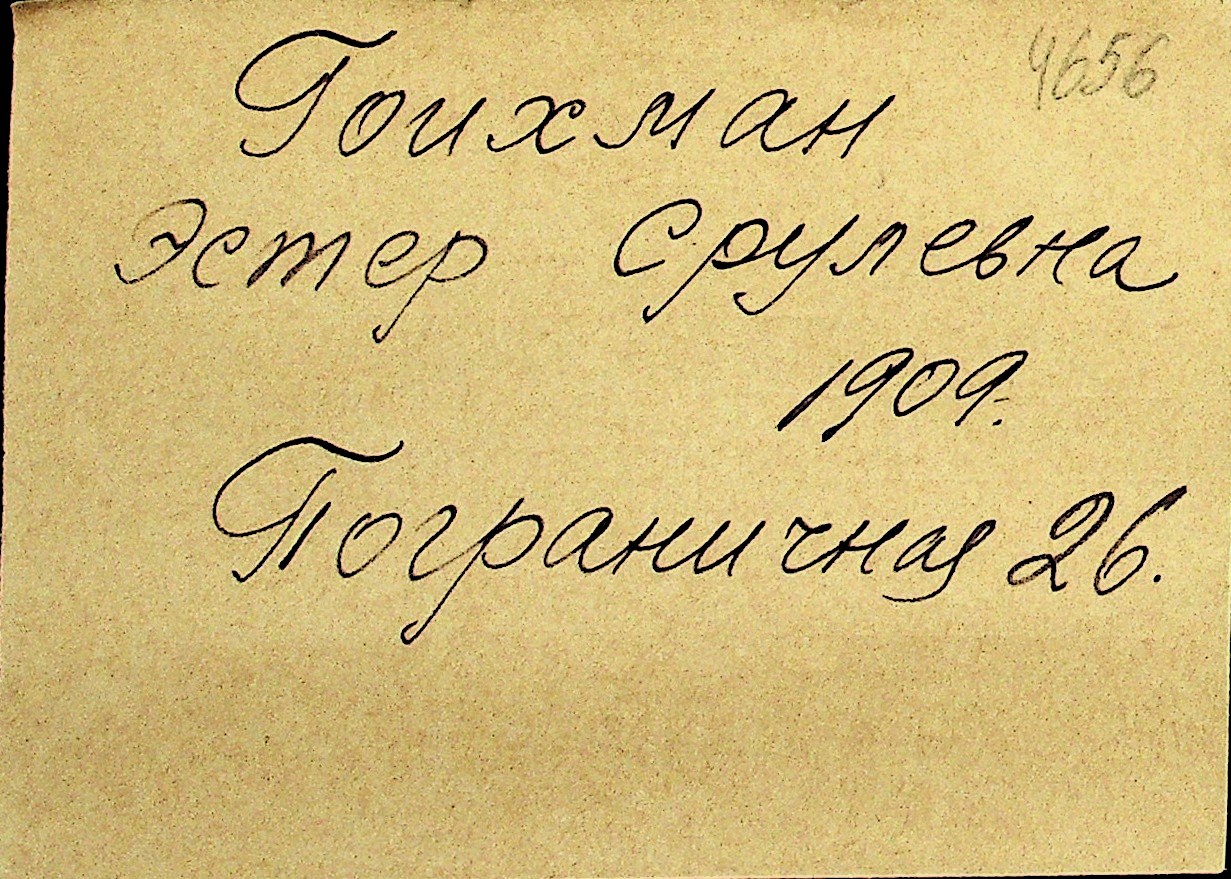 4656
Гоихман
Эстер Срулевна
1909.
Пограничная 26.